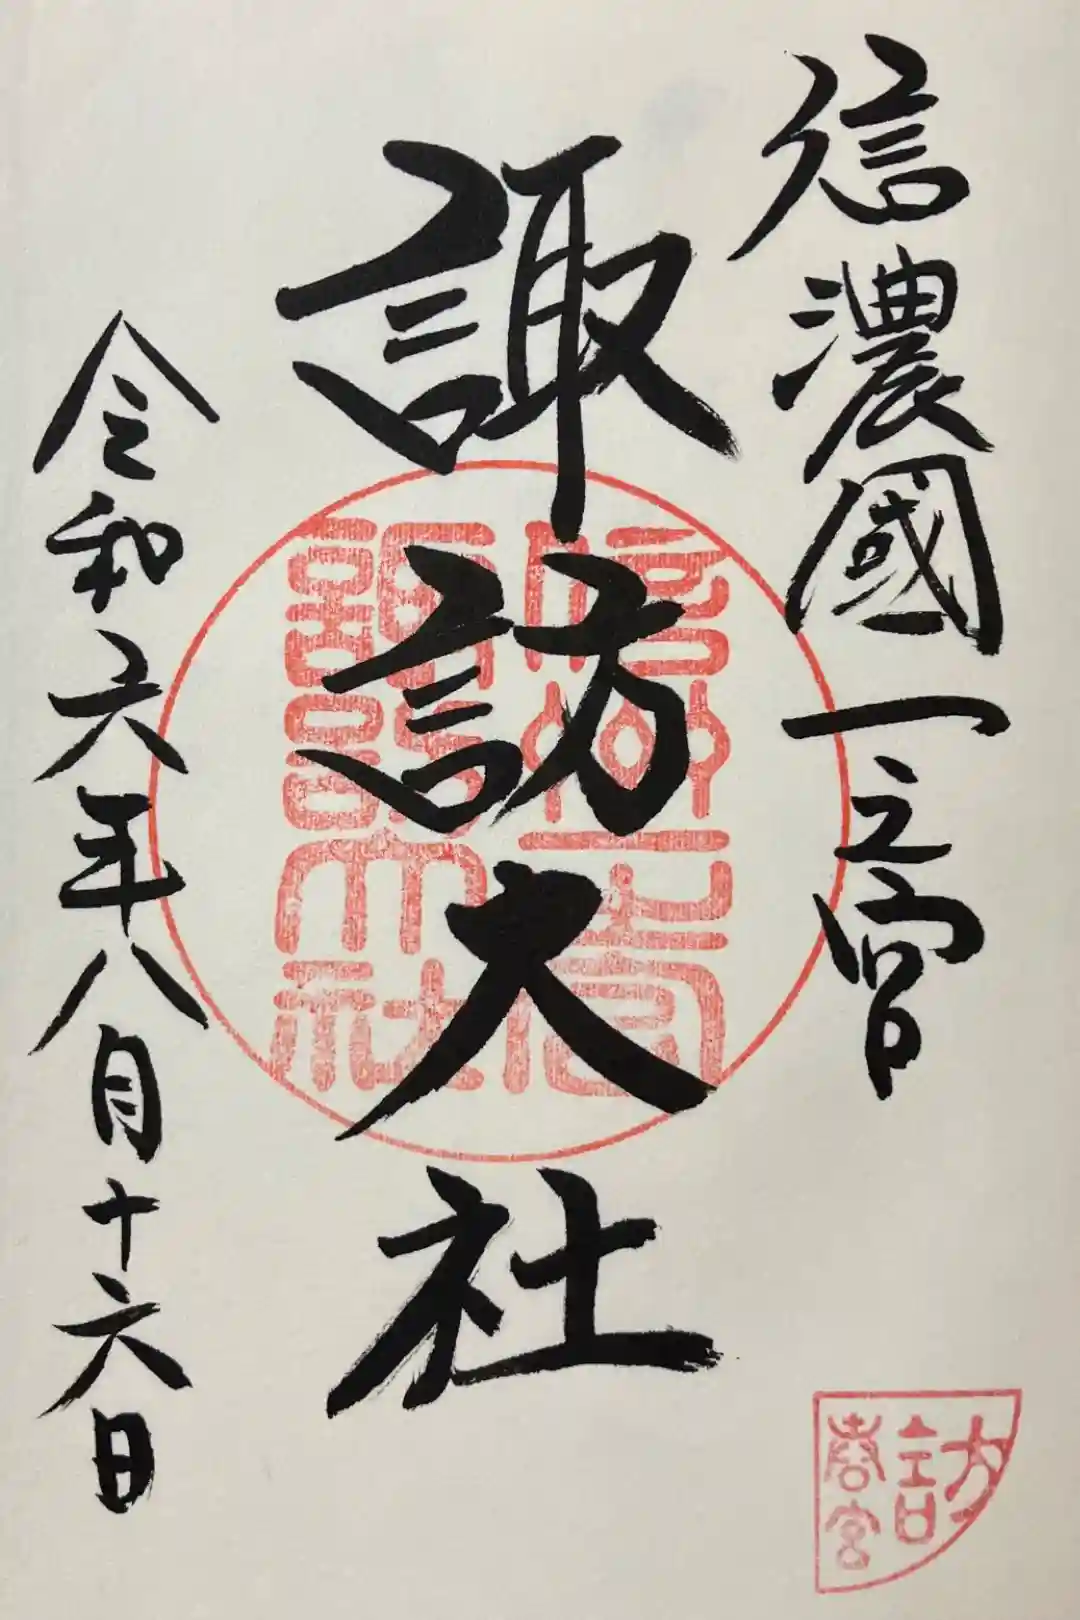 信濃國一之宮
諏訪大社
令和六年八月十六日
信州一之宮
諏訪大社
訪
春宮